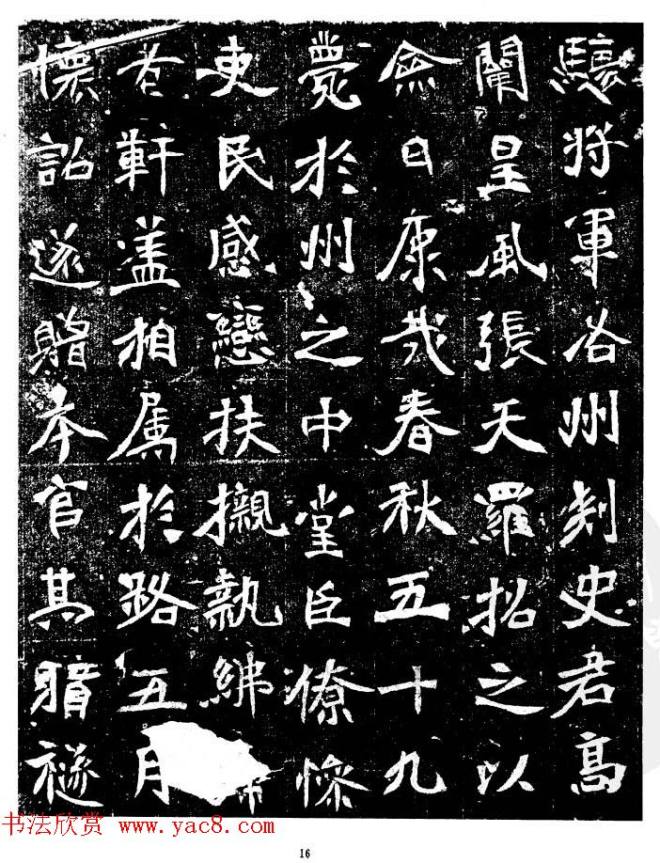 驤將軍洛州刾史君高
闡皇風張天羅招之以
僉曰康哉春秋五十九
薨於州之中堂臣僚惨
吏民感戀扶櫬執紼
者軒蓋相属於路五月
懷詔遂贈本官其賵襚
书法欣赏 www.yac8.com
16